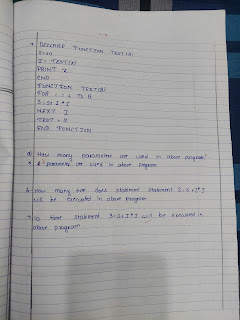 DECLARE FUNCTION TEST(B)
I = TEST(B)
PRINT I
END
FUNCTION TEST(B)
FOR TO B
S = S + I * I
NEXT I
TEST =
END FUNCTION
a) How many parameters are used in above program?
→ parameter used in above program
b. How many time does statement statement S = S + I * I
will be executed in above program
→ 10 time statement S = S + I * I will be executed in
above program